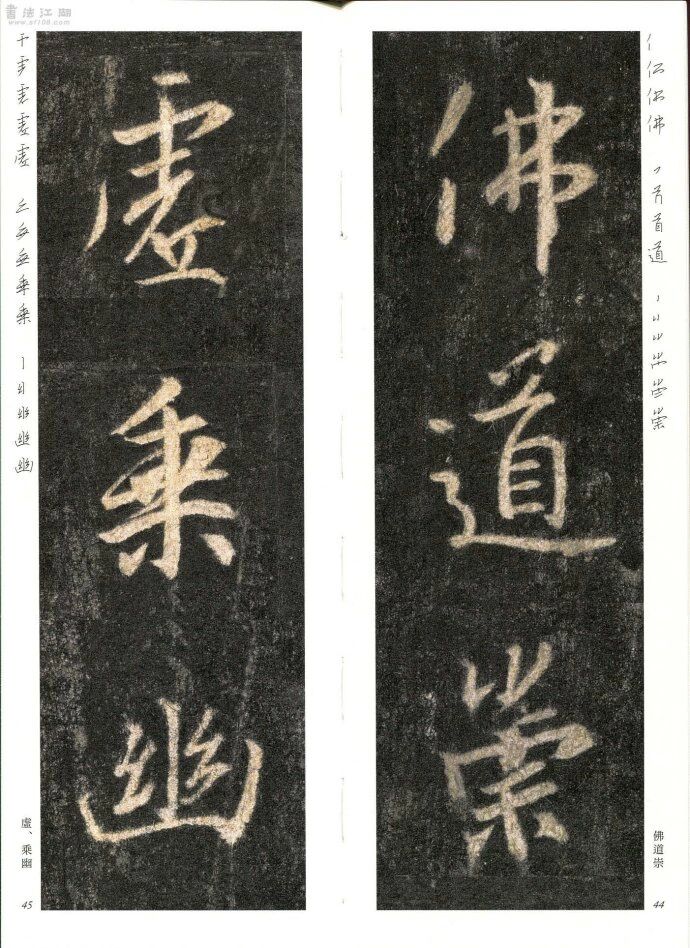 佛
道
崇
佛道崇
44
虛
乘
幽
虛、乘幽
45
書法江湖
www.sf108.com